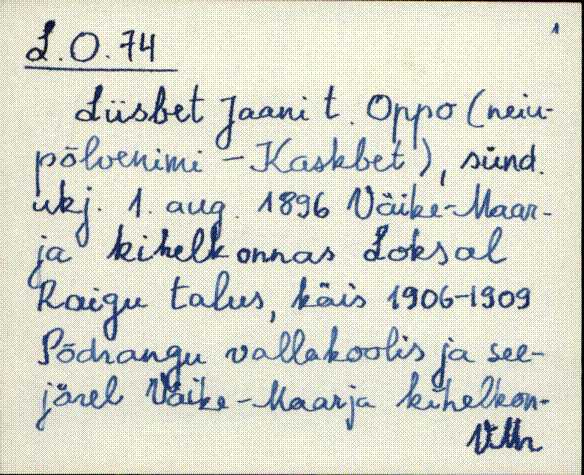 1
L.O.74
Liisbet Jaani t. Oppo (neiu-
põlvenimi - Kaskbet), sünd.
ukj. 1. aug. 1896 Väike-Maar-
ja kihelkonnas Loksal
Raigu talus, käis 1906-1909
Põdrangu vallakoolis ja see-
järel Väike-Maarja kihelkon-
VMr